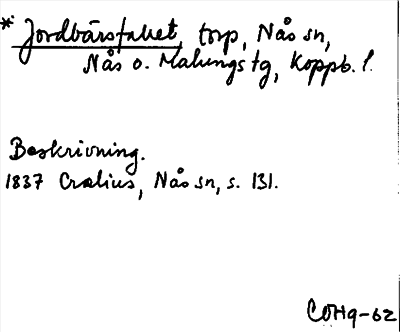 * Jordbärsfallet, torp, Nås sn,
Nås o. Malungs tg, Koppb. l.
Beskrivning.
1837 Crælius, Nås sn, s. 131.
COHq-62